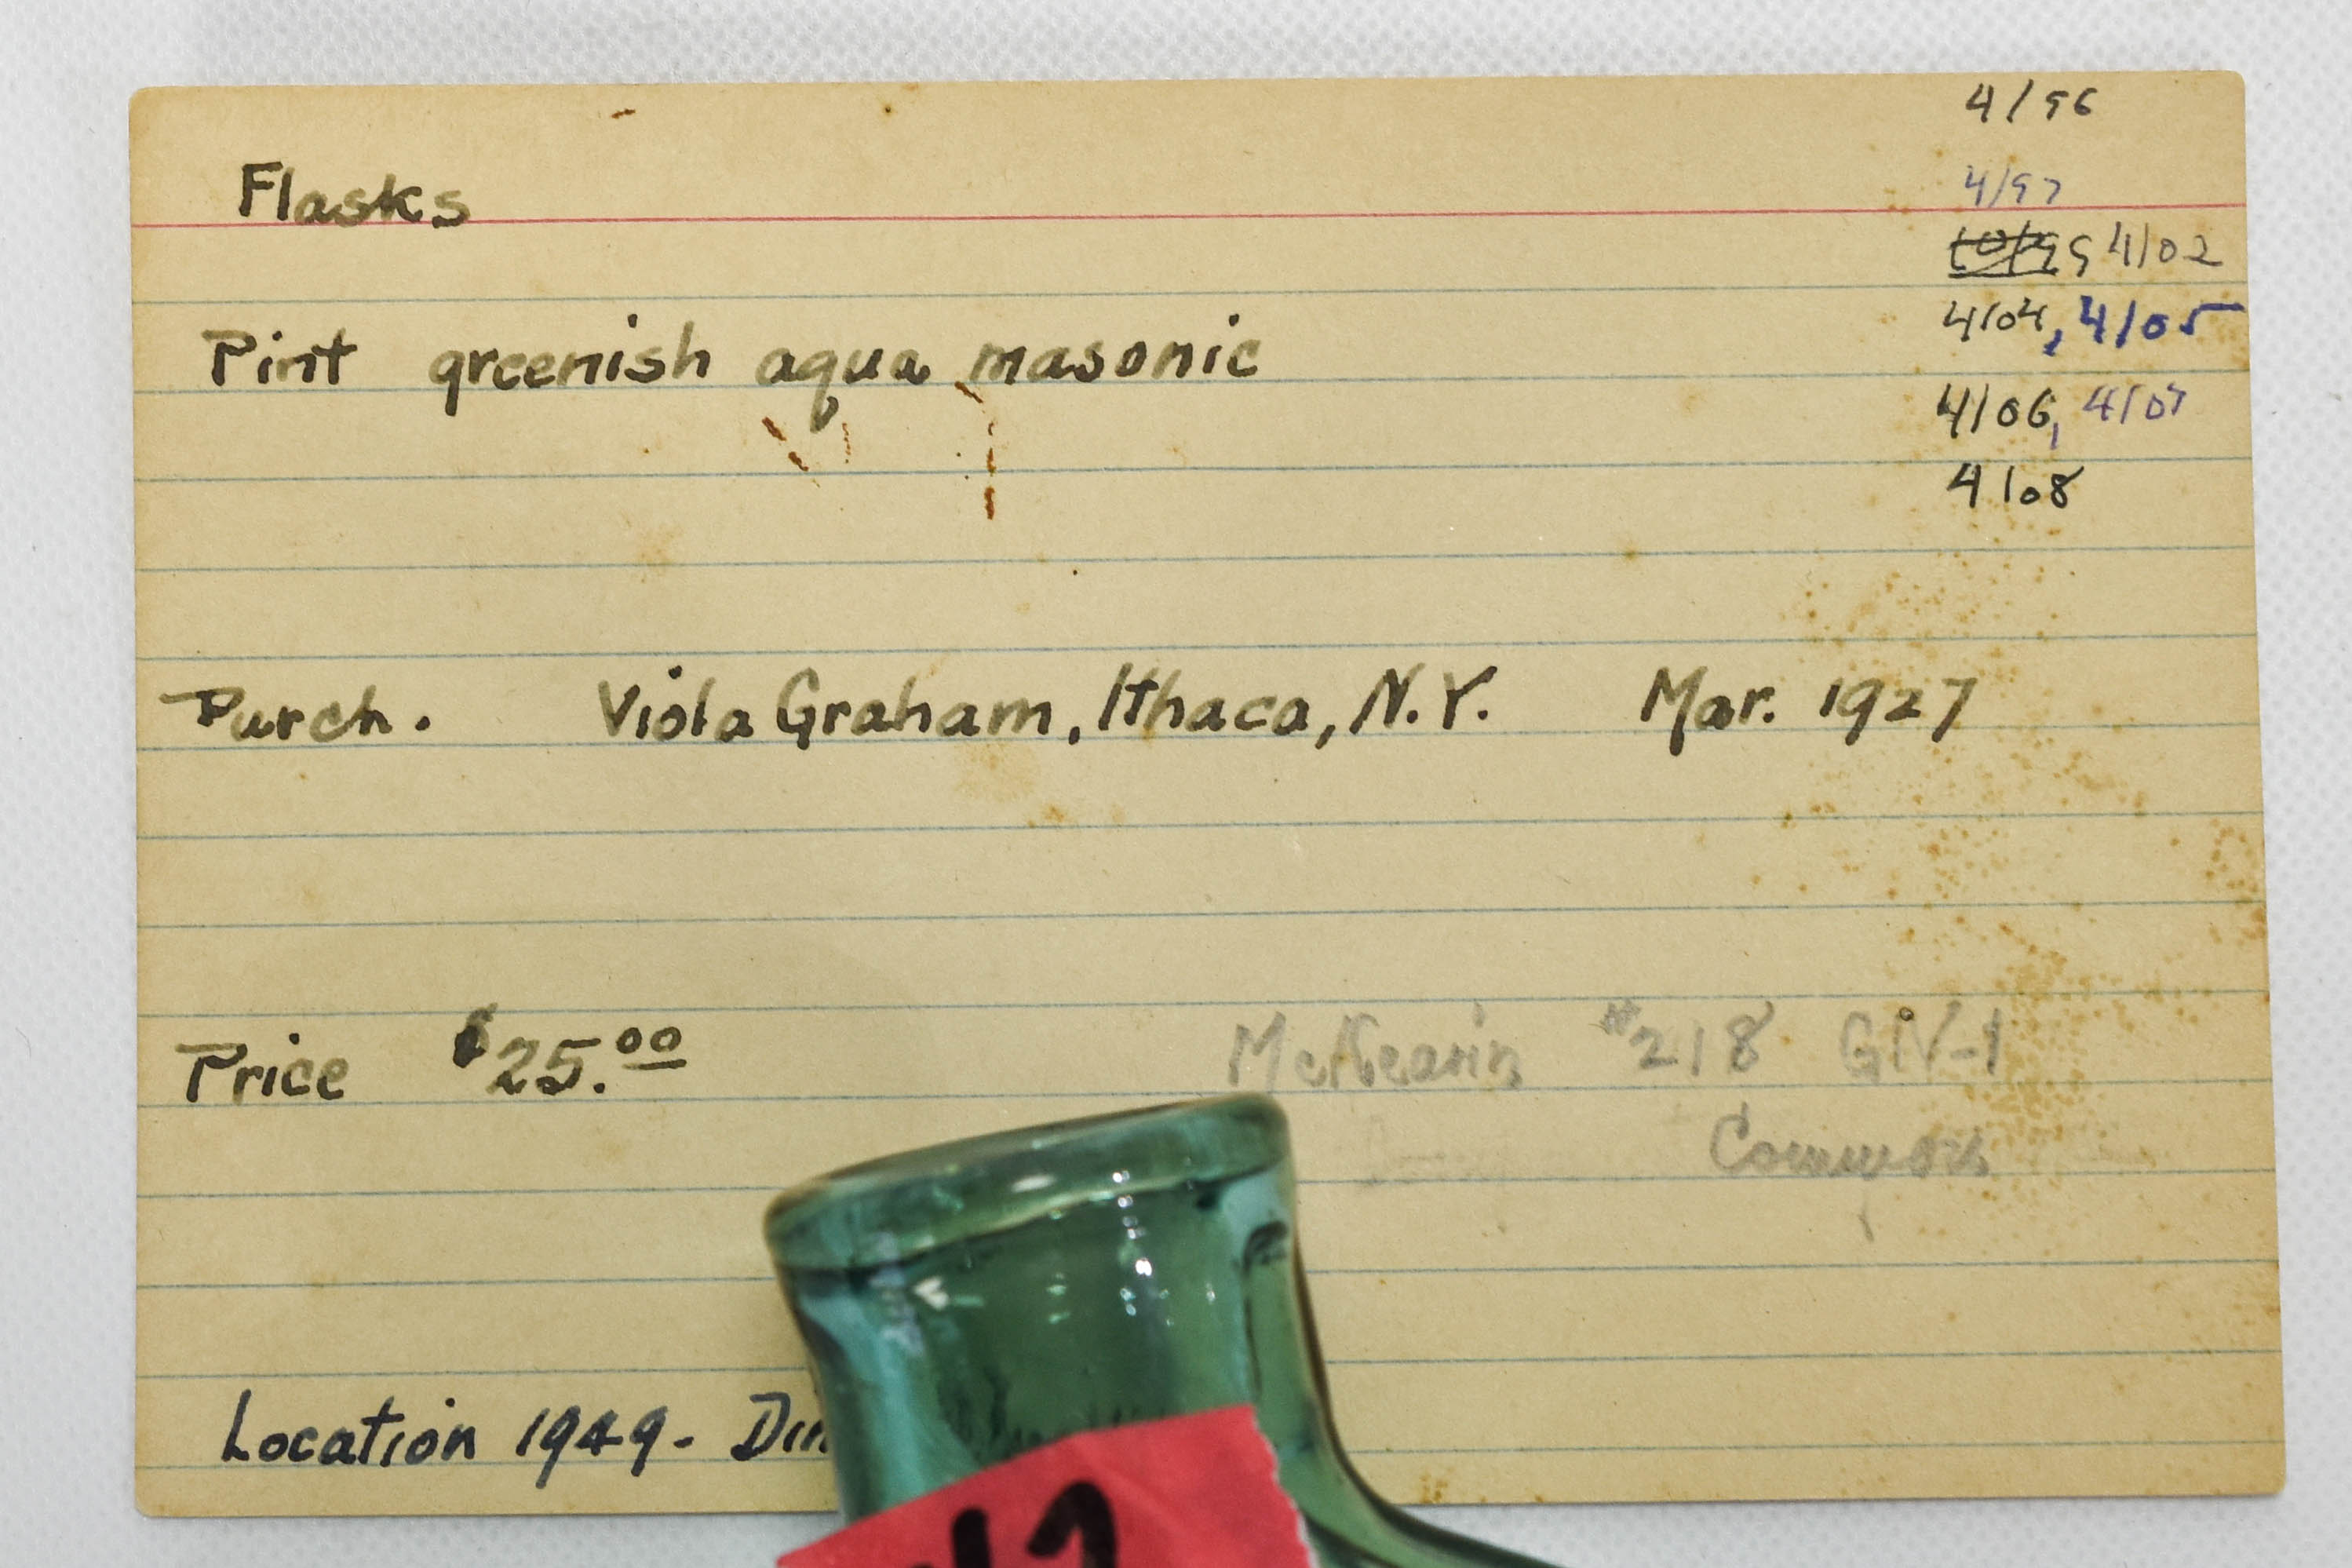 4/96
Flasks
4/97
4/02
4/04, 4/05
Pint greenish aqua masonic
4/06, 4/07
4/08
Purch. Viola Graham, Ithaca, N.Y. Mar. 1927
Price $25.00
McKearin #218 GIV-1
Common
Location 1949-